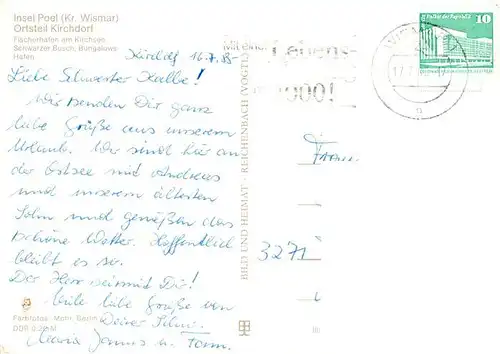 Insel Poel (Kr. Wismar)
Ortsteil Kirchdorf
Fischerhafen am Kirchsee
Schwarzer Busch, Bungalows
Hafen
Kirchdorf 16.7.85
Liebe Schwester Kalbe!
Wir senden Dir ganz
liebe Grüße aus unserem
Urlaub. Wir sind hier an
der Ostsee mit Andreas
und unserem ältesten
Sohn und genießen das
schöne Wetter. Hoffentlich
bleibt es so.
Der Herr sei mit Dir!
Viele liebe Grüße von
Deiner
Maria, u. Fam.
Farbfotos: Mohr, Berlin
DDR
BILD UND HEIMAT · REICHENBACH (VOGTL)
Lebens-
WISMAR
17.7.
10
Fam.
3271